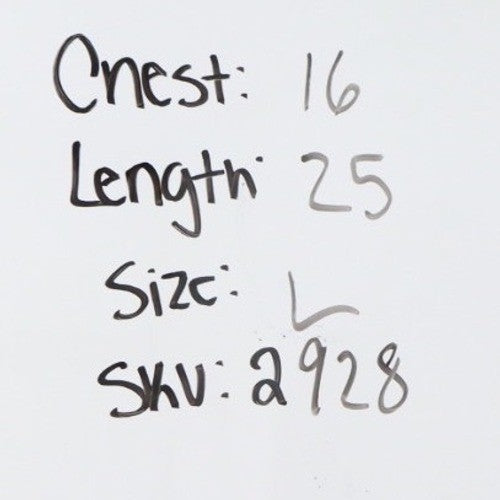 Chest: 16
Length: 25
Size: L
SKU: 2928